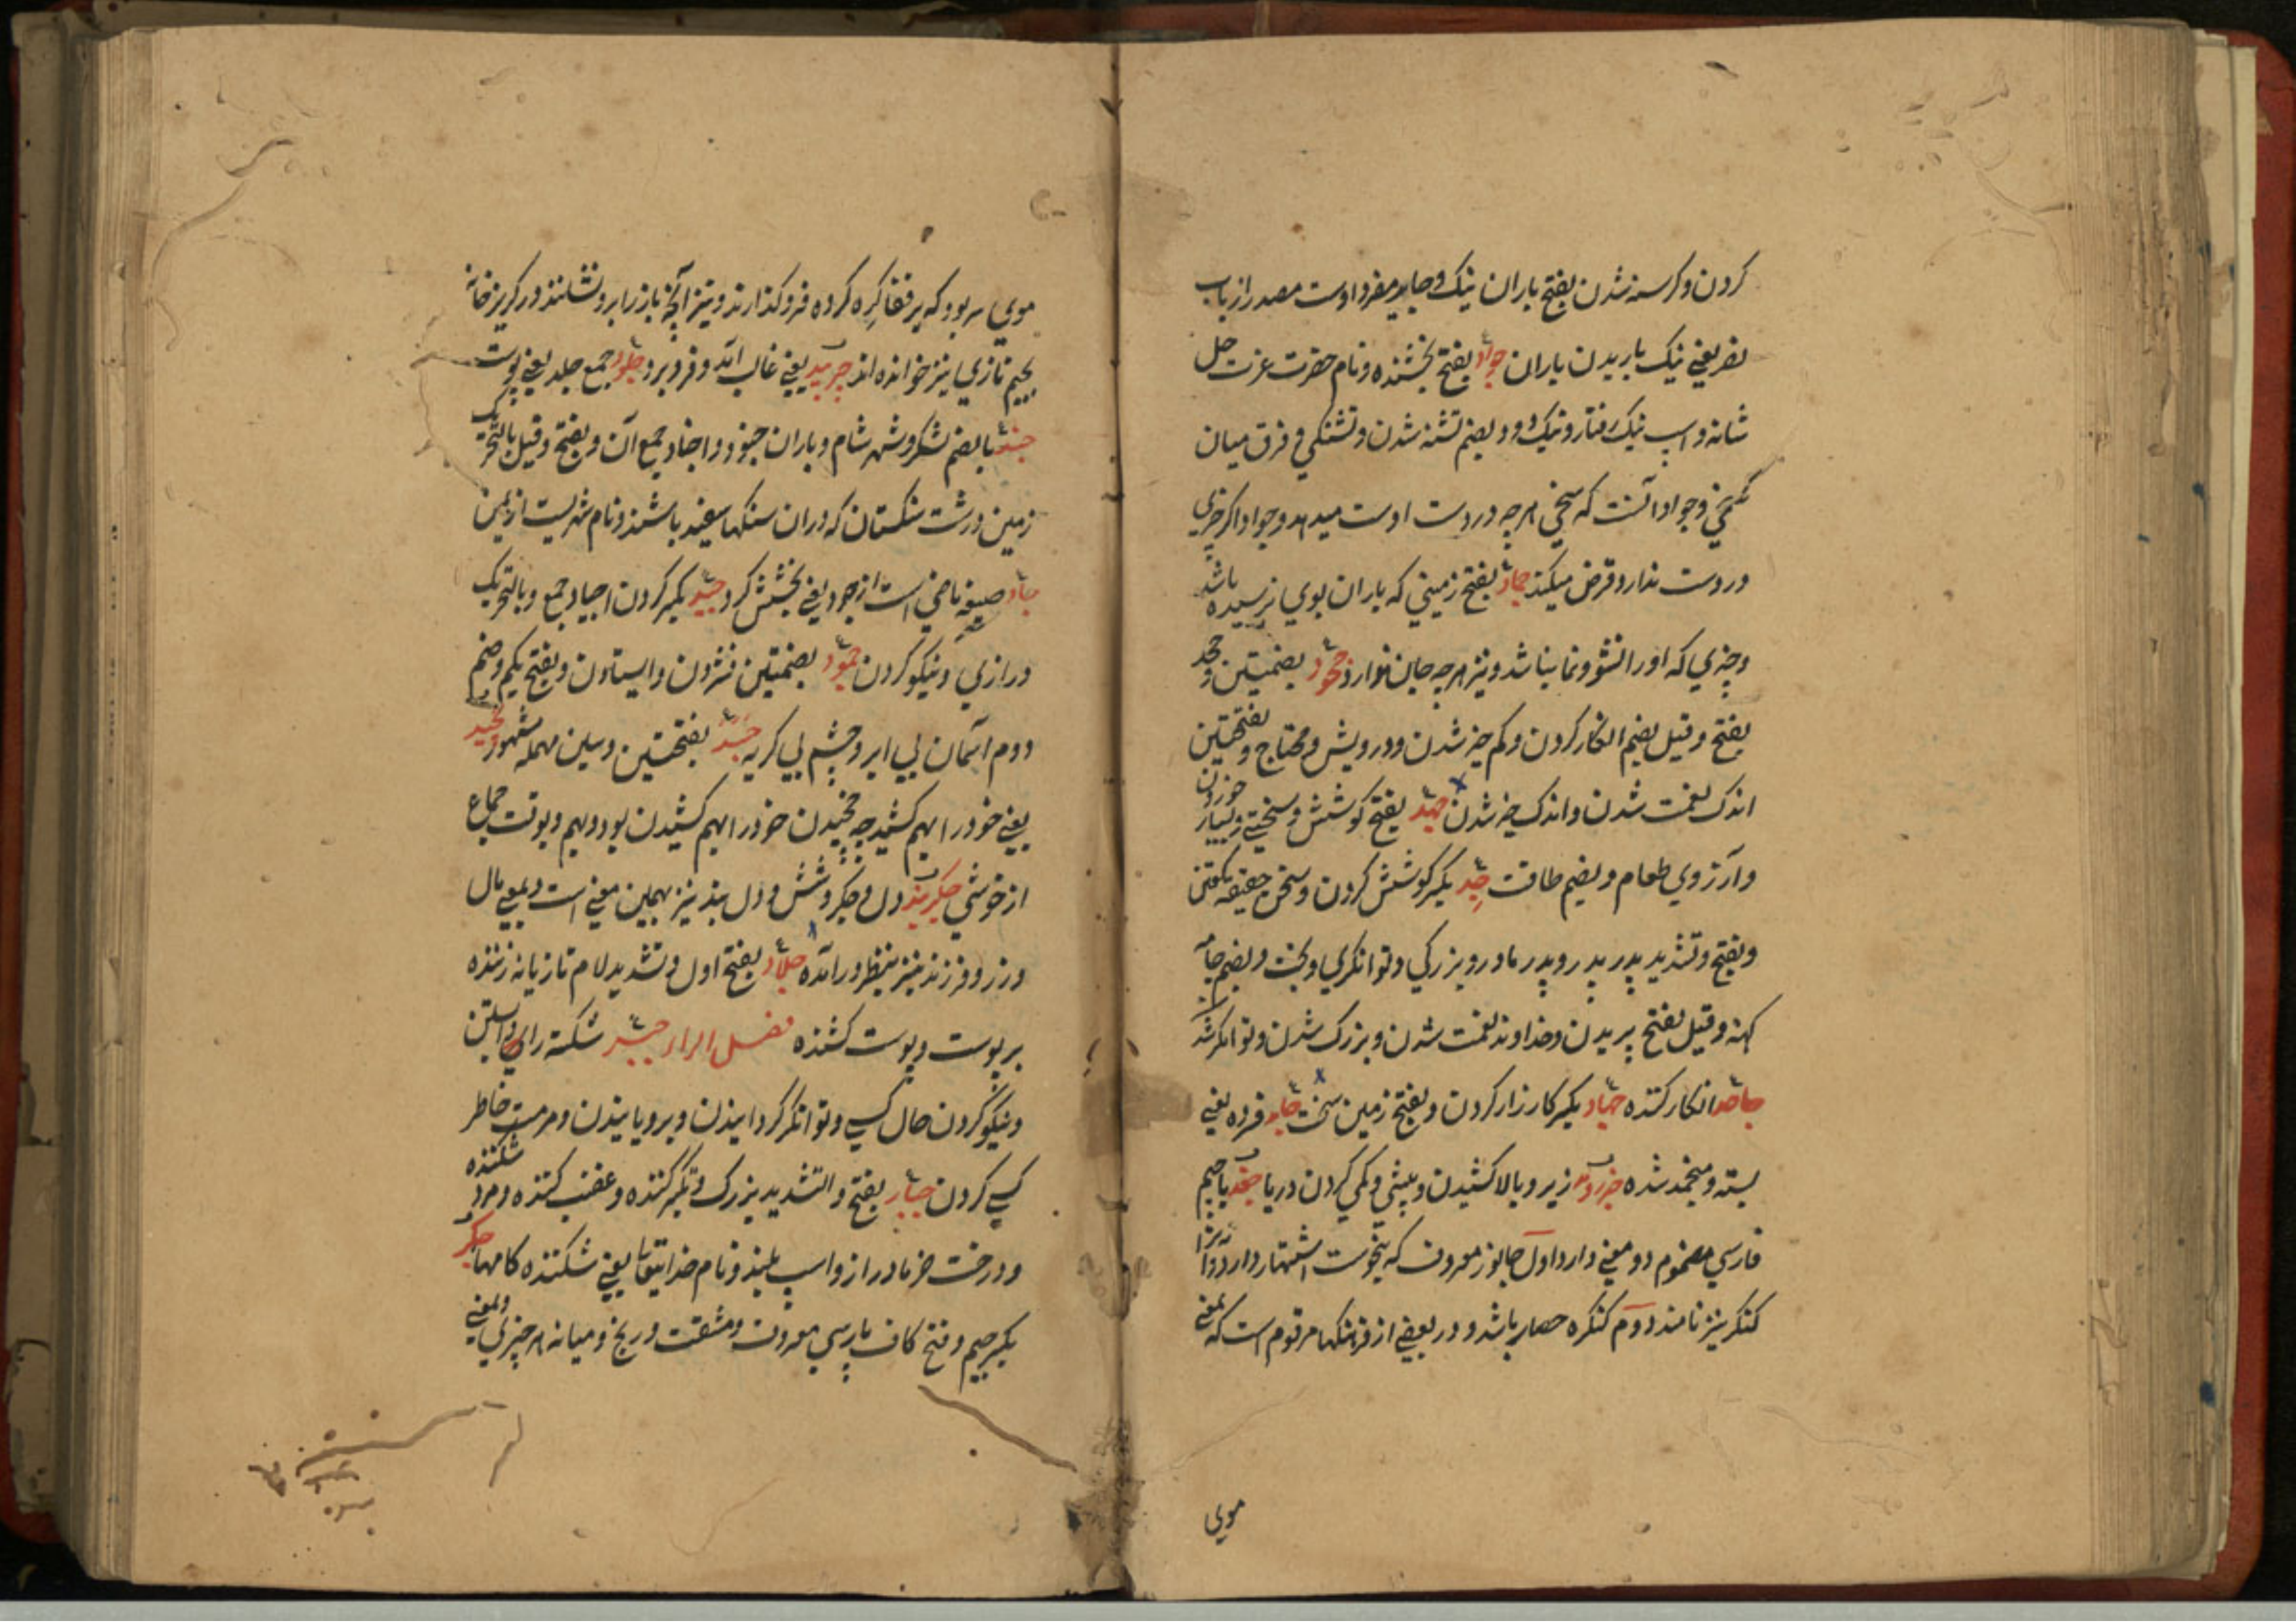 کردن و کرسنه شدن بفتح باران نیک و جابر مفرد اوست مصدر از باب
نصر یعنی نیک باریدن باران جواد بفتح بخشنده و نام حضرت عزت جل
شانه و اسپ نیک رفتار و نیک دو و بضم تشنه شدن و تشنکی و فرق میان
سخی و جواد آنست که سخی هر چه در دست اوست میدهد و جواد اکر چیزی
در دست ندارد قرض میکند جماد بفتح زمینی که باران بوی نرسیده باشد
و چیزی که او را نشو و نما نباشد و نیز هر چه جان ندارد جحود بضمتین و جحد
بفتح و قیل بضم انکار کردن و کم خیر شدن و درویش و محتاج و بفتحتین
اندک نعمت شدن و اندک خیر شدن جهد بفتح کوشش و سختی و بسیار خوردن
و آرزوی طعام و بضم طاقت جد بکسر کوشش کردن و سخن حقیقه کفتن
و بفتح و تشدید پدر پدر و پدر مادر و بزرکی و توانکری و بخت و بضم چاه
کهنه و قیل بفتح بریدن و خداوند نعمت شدن و بزرک شدن و توانکر شدن
جاحد انکار کننده جهاد بکسر کارزار کردن و بفتح زمین سخت جامد فسرده یعنی
بسته و منجمد شده جزر و مد زیر و بالا کشیدن و بیشی و کمی کردن دریا جغد با جیم
فارسی مضموم دو معنی دارد اول جانور معروف که بنحوست اشتهار دارد و آنرا
کنکر نیز نامند دوم کنکره حصار باشد و در بعضی از فرهنکها مرقوم است که بمعنی
موی
موی سر بود که بر قفا کره کرده فرو کذارند و نیز آنچه باز را برو نشانند در کریز خانه
بجیم تازی نیز خوانده اند جربید یعنی غالب آمد و فرو برد جلود جمع جلد یعنی پوست
جند بالضم لشکر و شهر شام و یاران جنود و اجناد جمع آن و بفتح و قیل بالتحریک
زمین درشت سنکستان که دران سنکها سفید باشند و نام شهریست از یمن
جاد صیغه ماضی است از جود یعنی بخشش کرد جید بکسر کردن اجیاد جمع و بالتحریک
درازی و نیکو کردن جمود بضمتین فسردن و ایستادن و بفتح یکم و ضم
دوم آسمان بی ابر و چشم بی کریه جسد بفتحتین و سین مهمله مشهور جخید
یعنی خود را بهم کشید چه جخیدن خود را بهم کشیدن بود و بهم و بوقت جماع
از خوشی جکربند دل و جکر و شش و دل بند نیز بهمین معنی است و بمعنی مال
و زر و فرزند نیز بنظر در آمده جلاد بفتح اول و تشدید لام تازیانه زننده
بر پوست و پوست کشنده فصل الراء جبر شکسته را بر بستن
و نیکو کردن حال کسی و توانکر کردانیدن و برویانیدن و مرمت خاطر
کسی کردن جبار بفتح و التشدید بزرک و تکبر کننده و غضب کننده و مرد شکننده
و درخت خرما دراز و اسپ بلند و نام خدایتعالی یعنی شکننده کامها جکر
بکسر جیم و فتح کاف پارسی معروف و مشقت و رنج و میانه هر چیزی و بمعنی